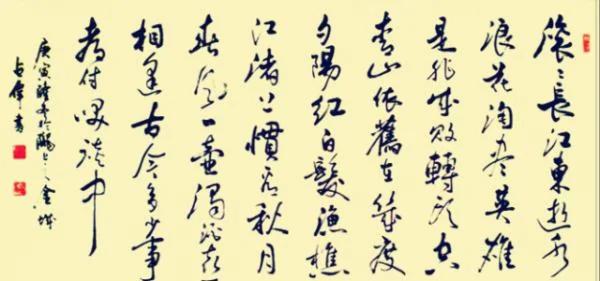 滚〻長江東逝水
浪花淘尽英雄
是非成敗轉頭空
青山依舊在幾度
夕陽紅白髮漁樵
江渚上慣看秋月
春風一壺濁酒喜
相逢古今多少事
都付笑談中
庚寅